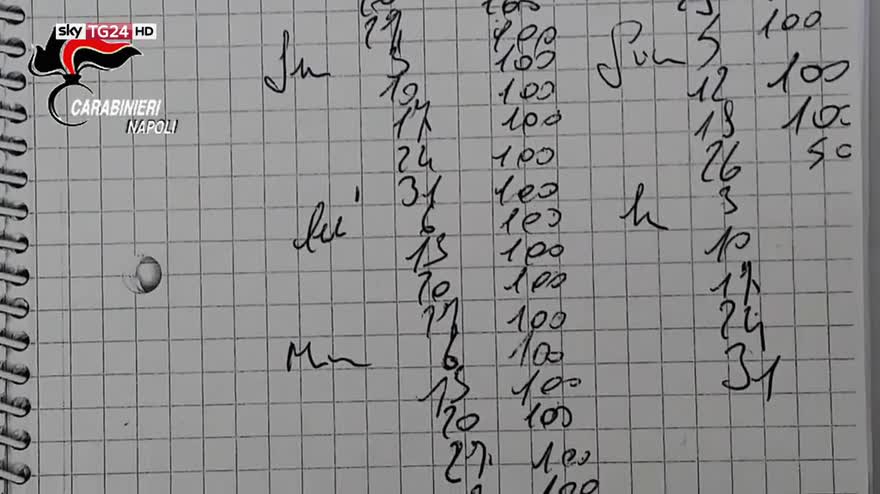 sky TG24 HD
CARABINIERI
NAPOLI
27 100
3 100
10 100
17 100
24 100
31 100
6 100
13 100
20 100
27 100
6 100
13 100
20 100
27 100
100
5 100
12 100
19 100
26 50
3
10
17
24
31